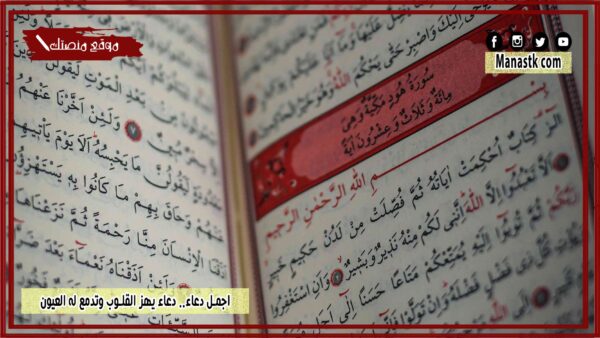 موقع منصتك
Manastk com
يَضِلُّ عَلَيْهَا وَمَا
اِلَيْكَ وَاصْبِرْ حَتّٰى يَحْكُمَ اللّٰهُ وَهُوَ خَيْرُ الْحَاكِمِينَ
سُورَةُ هُودٍ مَكِّيَّةٌ وَهِيَ
مِائَةٌ وَثَلَاثٌ وَعِشْرُونَ اٰيَةً
بِسْمِ اللّٰهِ الرَّحْمٰنِ الرَّحِيمِ
الٓرٰ كِتَابٌ اُحْكِمَتْ اٰيَاتُهُ ثُمَّ فُصِّلَتْ مِنْ لَدُنْ حَكِيمٍ خَبِيرٍ
اَلَّا تَعْبُدُوٓا اِلَّا اللّٰهَ اِنَّنِى لَكُمْ مِنْهُ نَذِيرٌ وَبَشِيرٌ وَاَنِ اسْتَغْفِرُوا
رَبَّكُمْ ثُمَّ تُوبُوٓا اِلَيْهِ يُمَتِّعْكُمْ مَتَاعًا حَسَنًا اِلٰٓى اَجَلٍ
كُلَّ ذِى فَضْلٍ فَضْلَهُ وَاِنْ تَوَلَّوْا
بَعْدِ الْمَوْتِ لَيَقُولَنَّ
مُبِينٌ ٧ وَلَئِنْ اَخَّرْنَا عَنْهُمُ
مَعْدُودَةٍ لَيَقُولُنَّ مَا يَحْبِسُهُ اَلَا يَوْمَ يَأْتِيهِمْ
عَنْهُمْ وَحَاقَ بِهِمْ مَا كَانُوا بِهِ يَسْتَهْزِؤُنَ
اَذَقْنَا الْاِنْسَانَ مِنَّا رَحْمَةً ثُمَّ نَزَعْنَاهَا
وَلَئِنْ اَذَقْنَاهُ نَعْمَٓاءَ بَعْدَ ضَرَّٓاءَ
اجمل دعاء.. دعاء يهز القلوب وتدمع له العيون